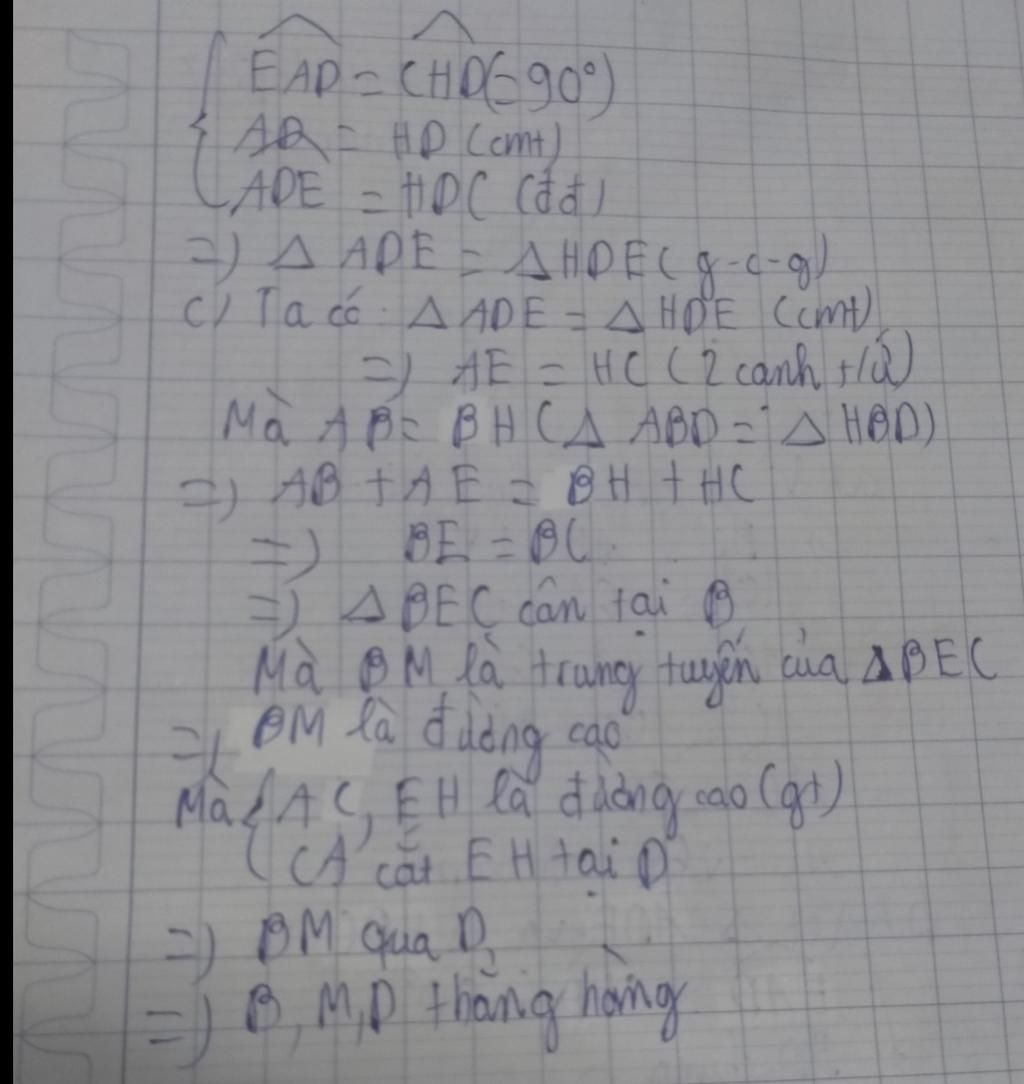 { EAD = CHD (= 90°)
AD = HD (cmt)
ADE = HDC (đđ)
=) Δ ADE = Δ HDE (g-c-g)
c) Ta có: Δ ADE = Δ HDE (cmt)
=) AE = HC (2 cạnh t/ứ)
Mà AB = BH (Δ ABD = Δ HBD)
=) AB + AE = BH + HC
=) BE = BC
=) Δ BEC cân tại B
Mà BM là trung tuyến của Δ BEC
=) BM là đường cao
Mà { AC, EH là đường cao (gt)
CA cắt EH tại D
=) BM qua D
=) B, M, D thẳng hàng